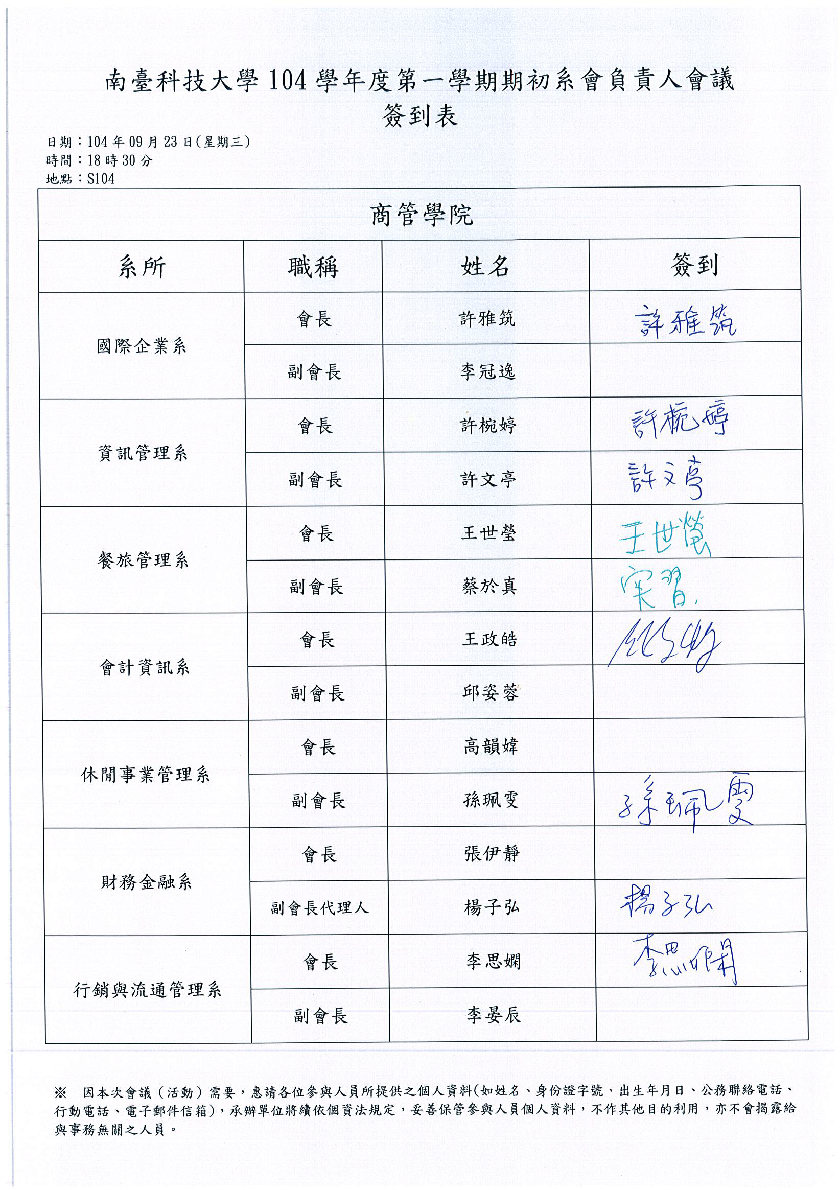 南臺科技大學 104 學年度第一學期期初系會負責人會議
簽到表
日期：104 年 09 月 23 日(星期三)
時間：18 時 30 分
地點：S104
商管學院
系所 職稱 姓名 簽到
國際企業系 會長 許雅筑 許雅筑
副會長 李冠逸
資訊管理系 會長 許椀婷 許椀婷
副會長 許文亭 許文亭
餐旅管理系 會長 王世瑩 王世瑩
副會長 蔡於真 実習.
會計資訊系 會長 王政皓
副會長 邱姿蓉
休閒事業管理系 會長 高韻媁
副會長 孫珮雯 孫珮雯
財務金融系 會長 張伊靜
副會長代理人 楊子弘 楊子弘
行銷與流通管理系 會長 李思嫻 李思嫻
副會長 李晏辰
※ 因本次會議（活動）需要，惠請各位參與人員所提供之個人資料(如姓名、身份證字號、出生年月日、公務聯絡電話、
行動電話、電子郵件信箱)，承辦單位將續依個資法規定，妥善保管參與人員個人資料，不作其他目的利用，亦不會揭露給
與事務無關之人員。